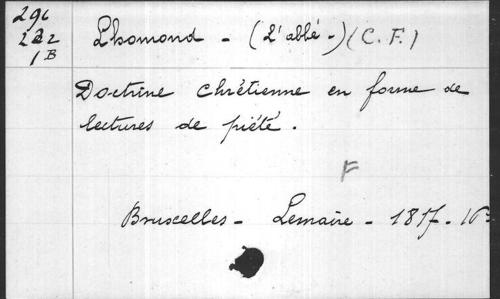 296
222
1B
Lhomond - (L'abbé -) (C. F.)
Doctrine chrétienne en forme de
lectures de piété.
F
Bruxelles - Lemaire - 1817 - 16°